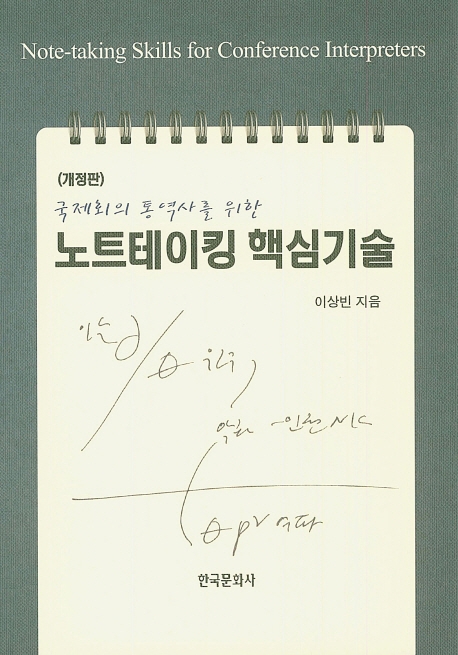 Note-taking Skills for Conference Interpreters
(개정판)
국제회의 통역사를 위한
노트테이킹 핵심기술
이상빈 지음
한국문화사